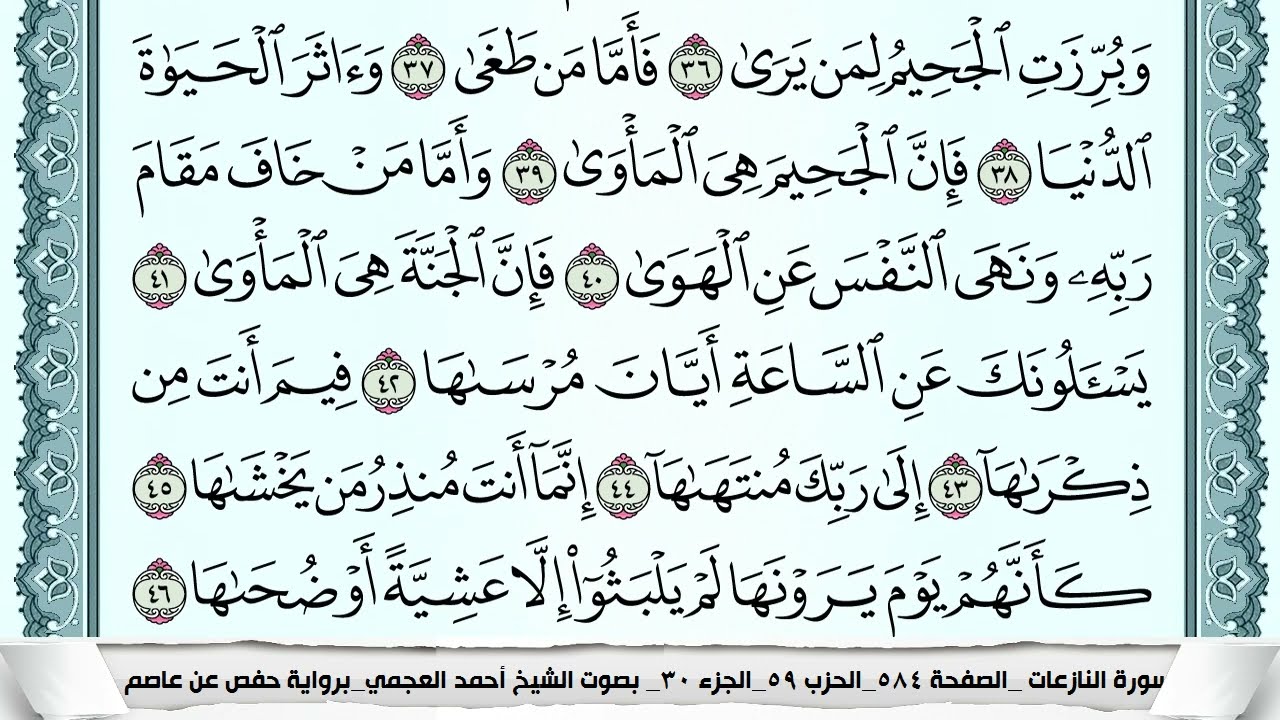 وَبُرِّزَتِ ٱلْجَحِيمُ لِمَن يَرَىٰ ٣٦ فَأَمَّا مَن طَغَىٰ ٣٧ وَءَاثَرَ ٱلْحَيَوٰةَ
ٱلدُّنْيَا ٣٨ فَإِنَّ ٱلْجَحِيمَ هِىَ ٱلْمَأْوَىٰ ٣٩ وَأَمَّا مَنْ خَافَ مَقَامَ
رَبِّهِۦ وَنَهَى ٱلنَّفْسَ عَنِ ٱلْهَوَىٰ ٤٠ فَإِنَّ ٱلْجَنَّةَ هِىَ ٱلْمَأْوَىٰ ٤١
يَسْـَٔلُونَكَ عَنِ ٱلسَّاعَةِ أَيَّانَ مُرْسَىٰهَا ٤٢ فِيمَ أَنتَ مِن
ذِكْرَىٰهَآ ٤٣ إِلَىٰ رَبِّكَ مُنتَهَىٰهَآ ٤٤ إِنَّمَآ أَنتَ مُنذِرُ مَن يَخْشَىٰهَا ٤٥
كَأَنَّهُمْ يَوْمَ يَرَوْنَهَا لَمْ يَلْبَثُوٓا۟ إِلَّا عَشِيَّةً أَوْ ضُحَىٰهَا ٤٦
سورة النازعات _الصفحة ٥٨٤_الحزب ٥٩_الجزء ٣٠_ بصوت الشيخ أحمد العجمي_برواية حفص عن عاصم